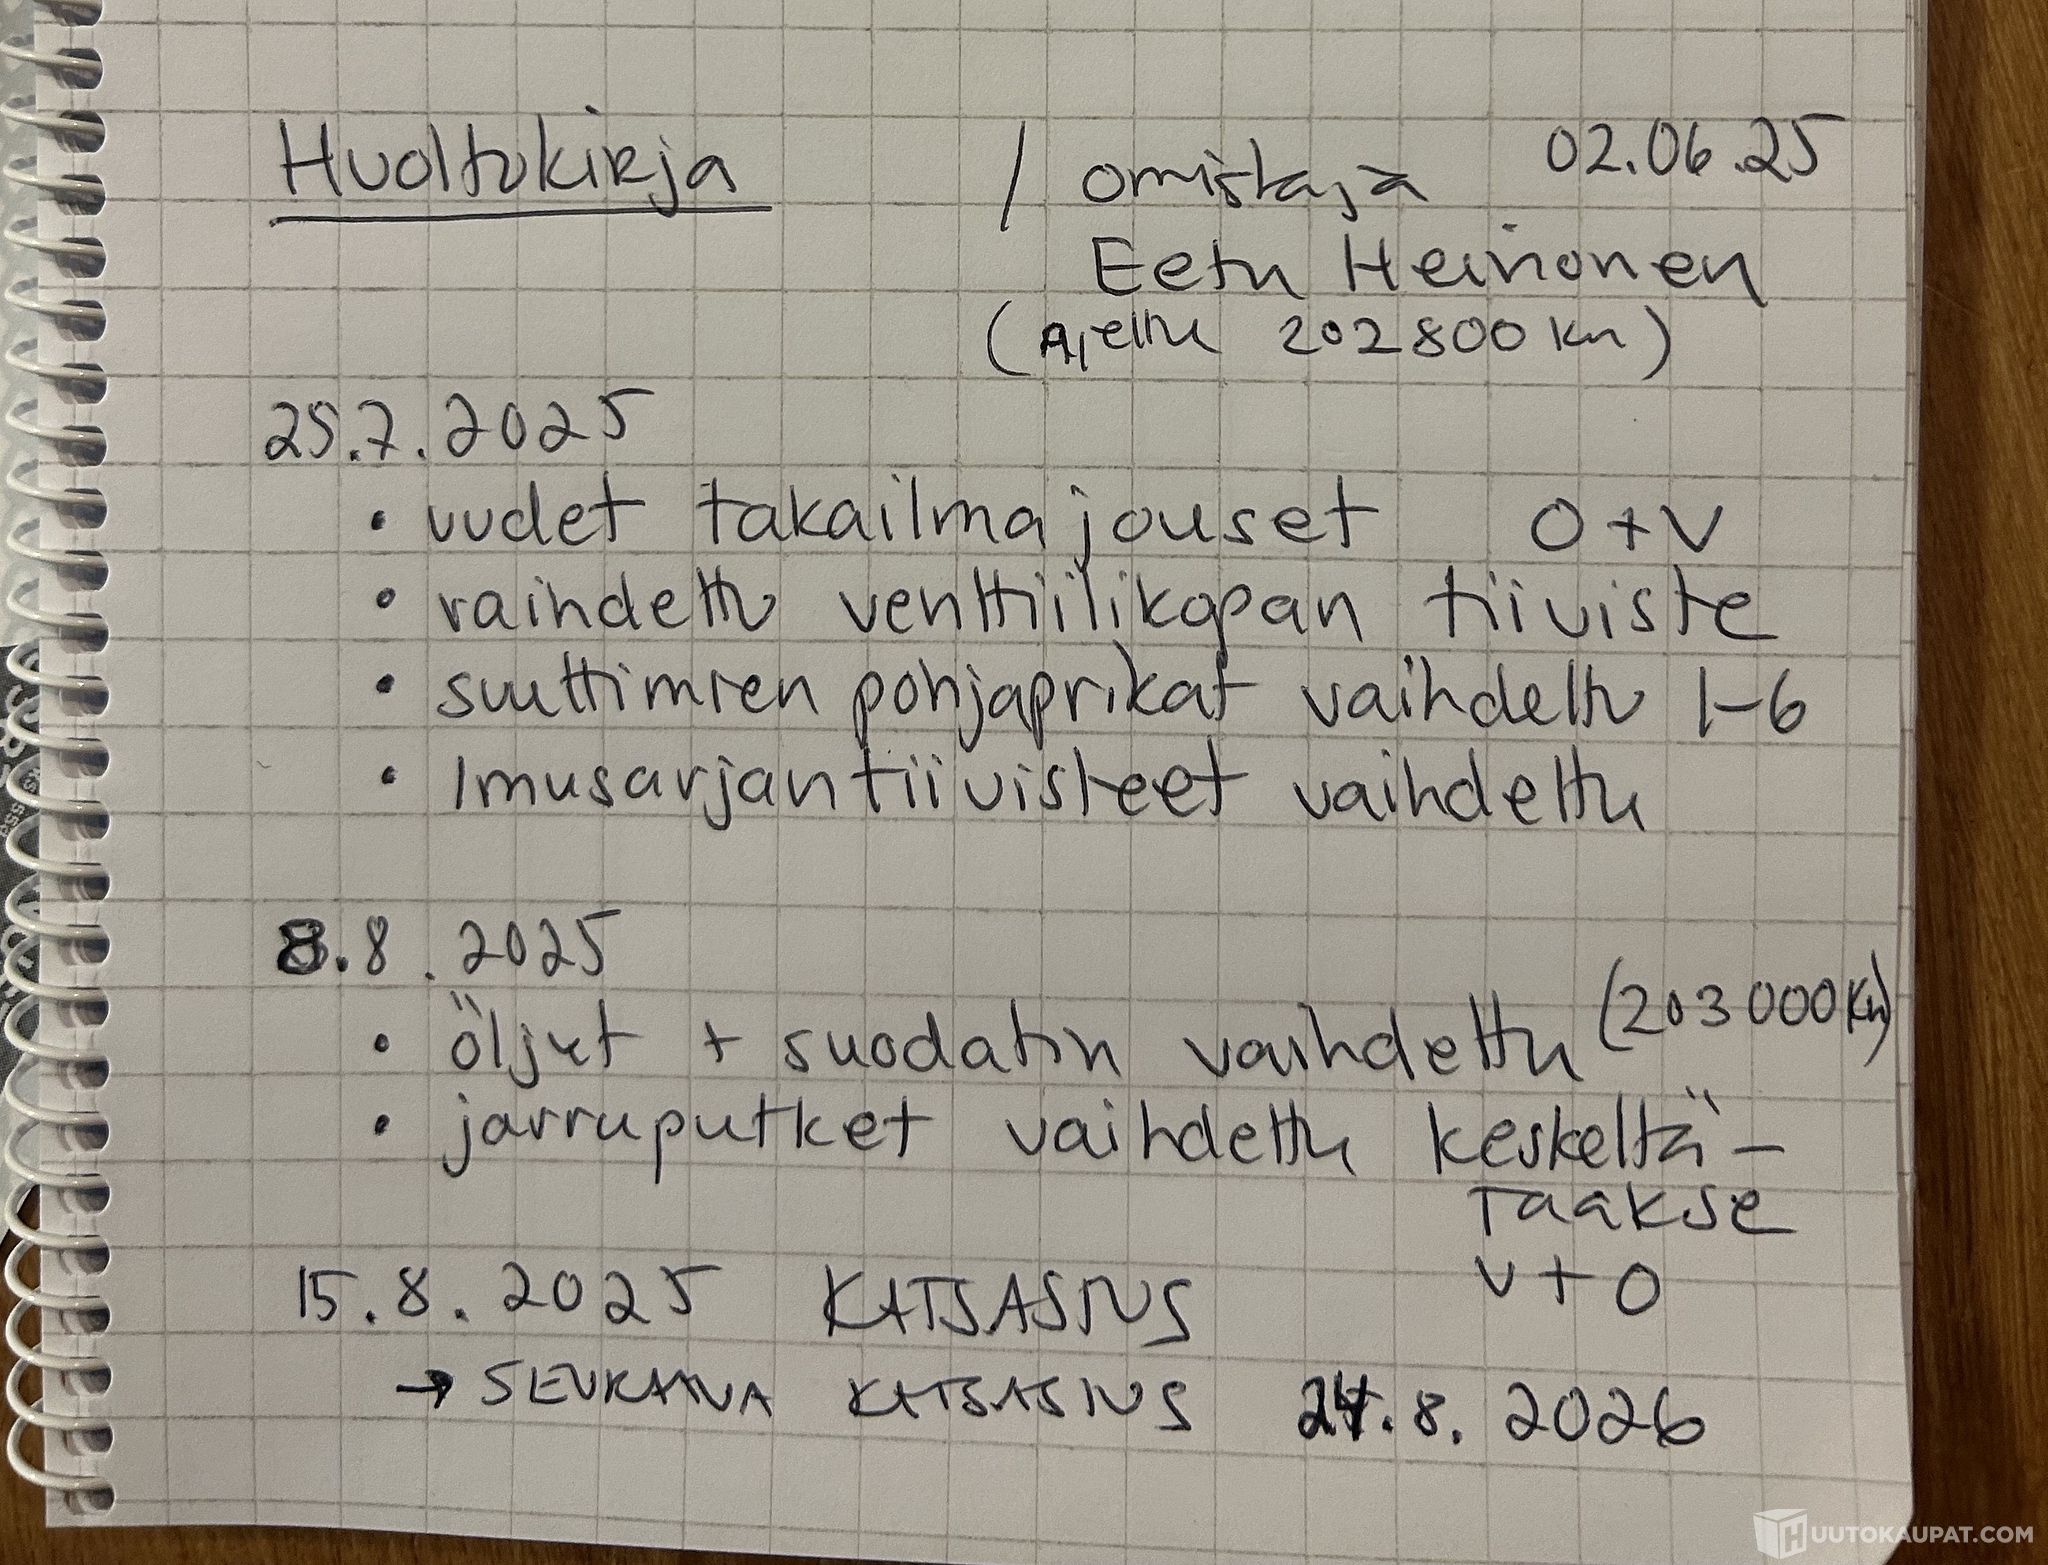 Huoltokirja / omistaja 02.06.25
Eetu Heinonen
(Ajettu 202800 km)
25.7.2025
• uudet takailmajouset O+V
• vaihdettu venttiilikopan tiiviste
• suuttimien pohjaprikat vaihdettu 1-6
• Imusarjan tiivisteet vaihdettu
8.8.2025
• öljyt + suodatin vaihdettu (203000 km)
• jarruputket vaihdettu keskeltä-
taakse
V+O
15.8.2025 KATSASTUS
→ SEURAAVA KATSASTUS 24.8.2026
HUUTOKAUPAT.COM